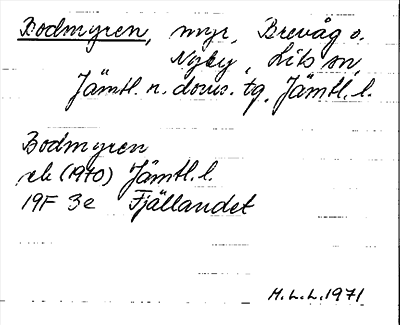 Bodmyren, myr, Brevåg o.
Nyby, Lits sn,
Jämtl. n. doms. tg. Jämtl. l.
Bodmyren
ek (1970) Jämtl. l.
19F 3e Fjällandet
H.L.L. 1971